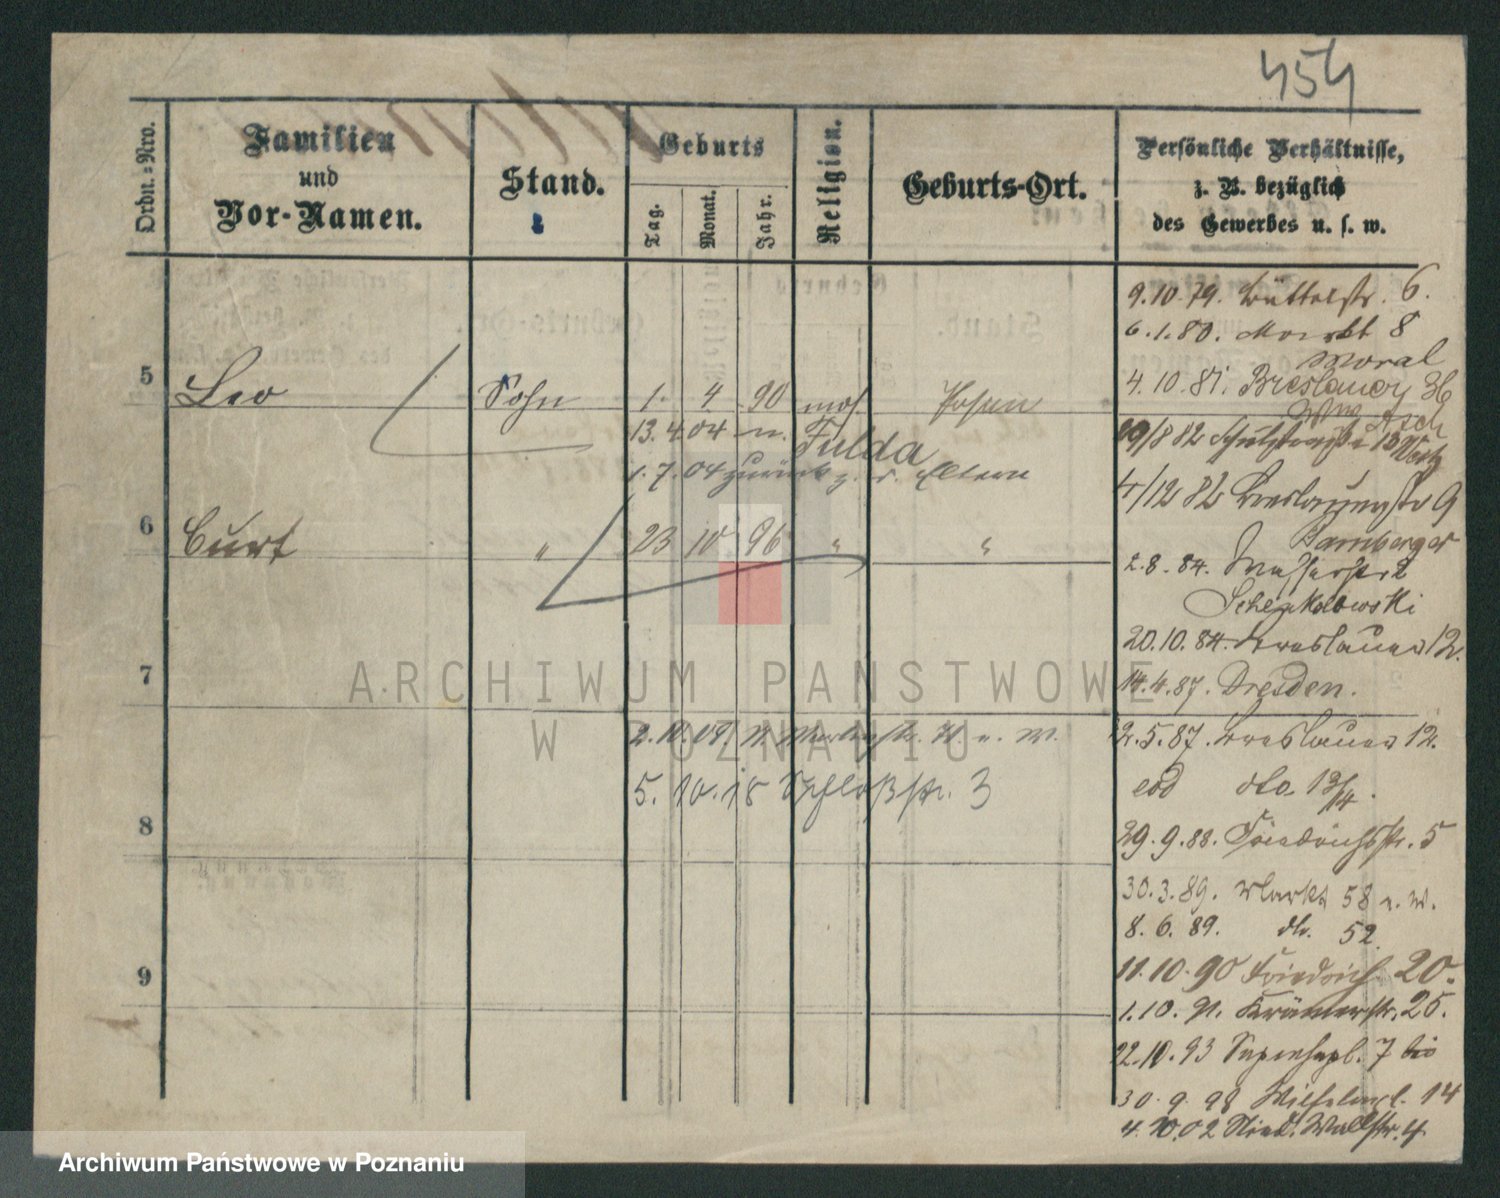 454
Ordn.-Nro.
Familien
und
Vor-Namen.
Stand.
Geburts
Tag.
Monat.
Jahr.
Religion.
Geburts-Ort.
Persönliche Verhältnisse,
z. B. bezüglich
des Gewerbes u. s. w.
9.10.79. Büttelstr. 6.
6.1.80. Markt 8
Moral
4.10.81. Breslauer 36
Ww Asch
5 Leo Sohn 1. 4 90 mos. Posen
13.4.04 n. Fulda
1.7.04 zurück z. d. Eltern
19/8 82 Schulstraße 13
4/12 82 Breslauerstr 9
Bamberger
6 Curt " 23 10 96 " "
2.8.84. Wasserstr 2
20.10.84. Breslauer 12.
7
14.4.87. Dresden.
2.5.87. Breslauer 12.
2.10.09.
5.10.18 Schloßstr. 3
eod dto. 13/14.
8
29.9.88. Friedrichsstr. 5
30.3.89. Markt 58 n. W.
8.6.89. do. 52.
9
11.10.90 Friedrich. 20.
1.10.91. Krämerstr. 25.
22.10.93 Sapiehapl. 7 bis
30.9.98 Wilhelmpl. 14
4.10.02 Nied. Wallstr. 4
ARCHIWUM PAŃSTWOWE
W POZNANIU
Archiwum Państwowe w Poznaniu